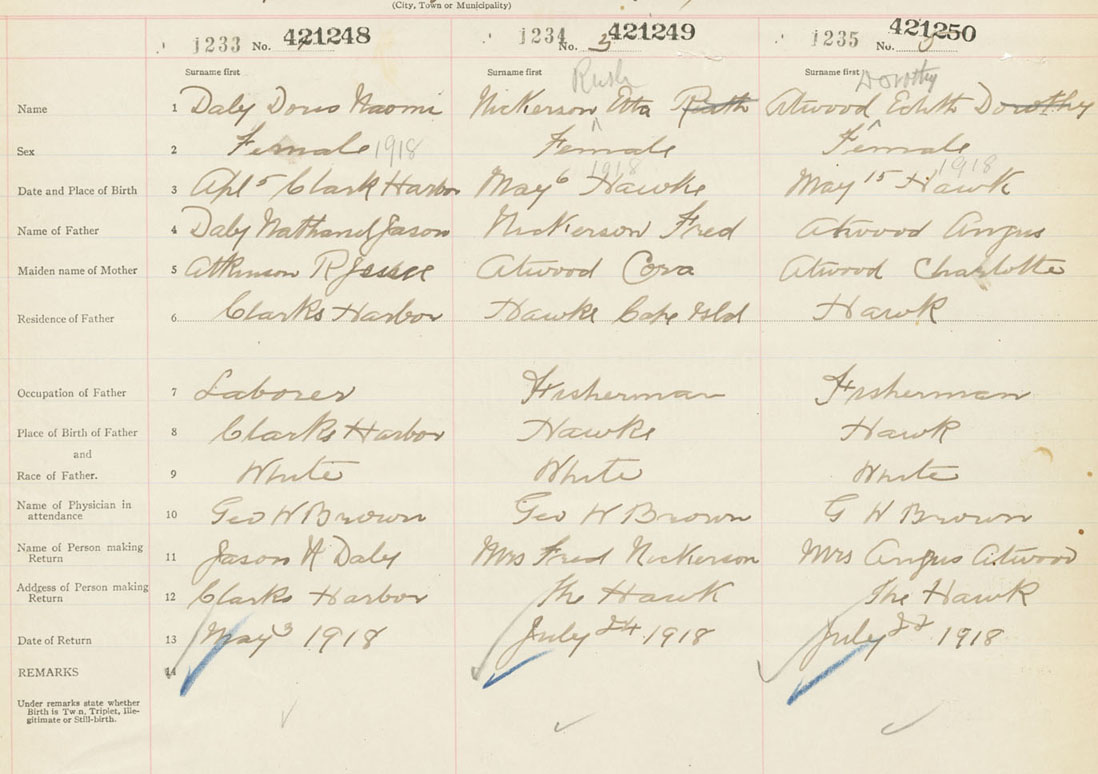 (City, Town or Municipality)
1233 No. 421248 1234 No. 5 421249 1235 No. 421250
Surname first Surname first Surname first
Ruth Dorothy
Name 1 Daly Doris Naomi Nickerson ^ Etta Ruth Atwood ^ Edith Dorothy
Sex 2 Female 1918 Female 1918 Female 1918
Date and Place of Birth 3 Apl 5 Clark Harbor May 6 Hawke May 15 Hawk
Name of Father 4 Daly Nathaniel Jason Nickerson Fred Atwood Angus
Maiden name of Mother 5 Atkinson R Jessie Atwood Cora Atwood Charlotte
Residence of Father 6 Clarks Harbor Hawke Cape Isld Hawk
Occupation of Father 7 Laborer Fisherman Fisherman
Place of Birth of Father 8 Clarks Harbor Hawke Hawk
and
Race of Father. 9 White White White
Name of Physician in
attendance 10 Geo W Brown Geo W Brown G W Brown
Name of Person making
Return 11 Jason N Daly Mrs Fred Nickerson Mrs Angus Atwood
Address of Person making
Return 12 Clarks Harbor The Hawk The Hawk
Date of Return 13 May 3 1918 July 24 1918 July 22 1918
REMARKS 14
Under remarks state whether
Birth is Twin, Triplet, Ille-
gitimate or Still-birth.